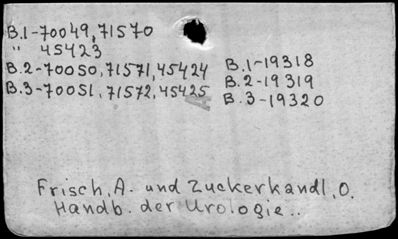 B.1-70049,71570
" 45423
B.2-70050,71571,45424
B.3-70051,71572,45425
B.1-19318
B.2-19319
B.3-19320
Frisch, A. und Zuckerkandl, O.
Handb. der Urologie..